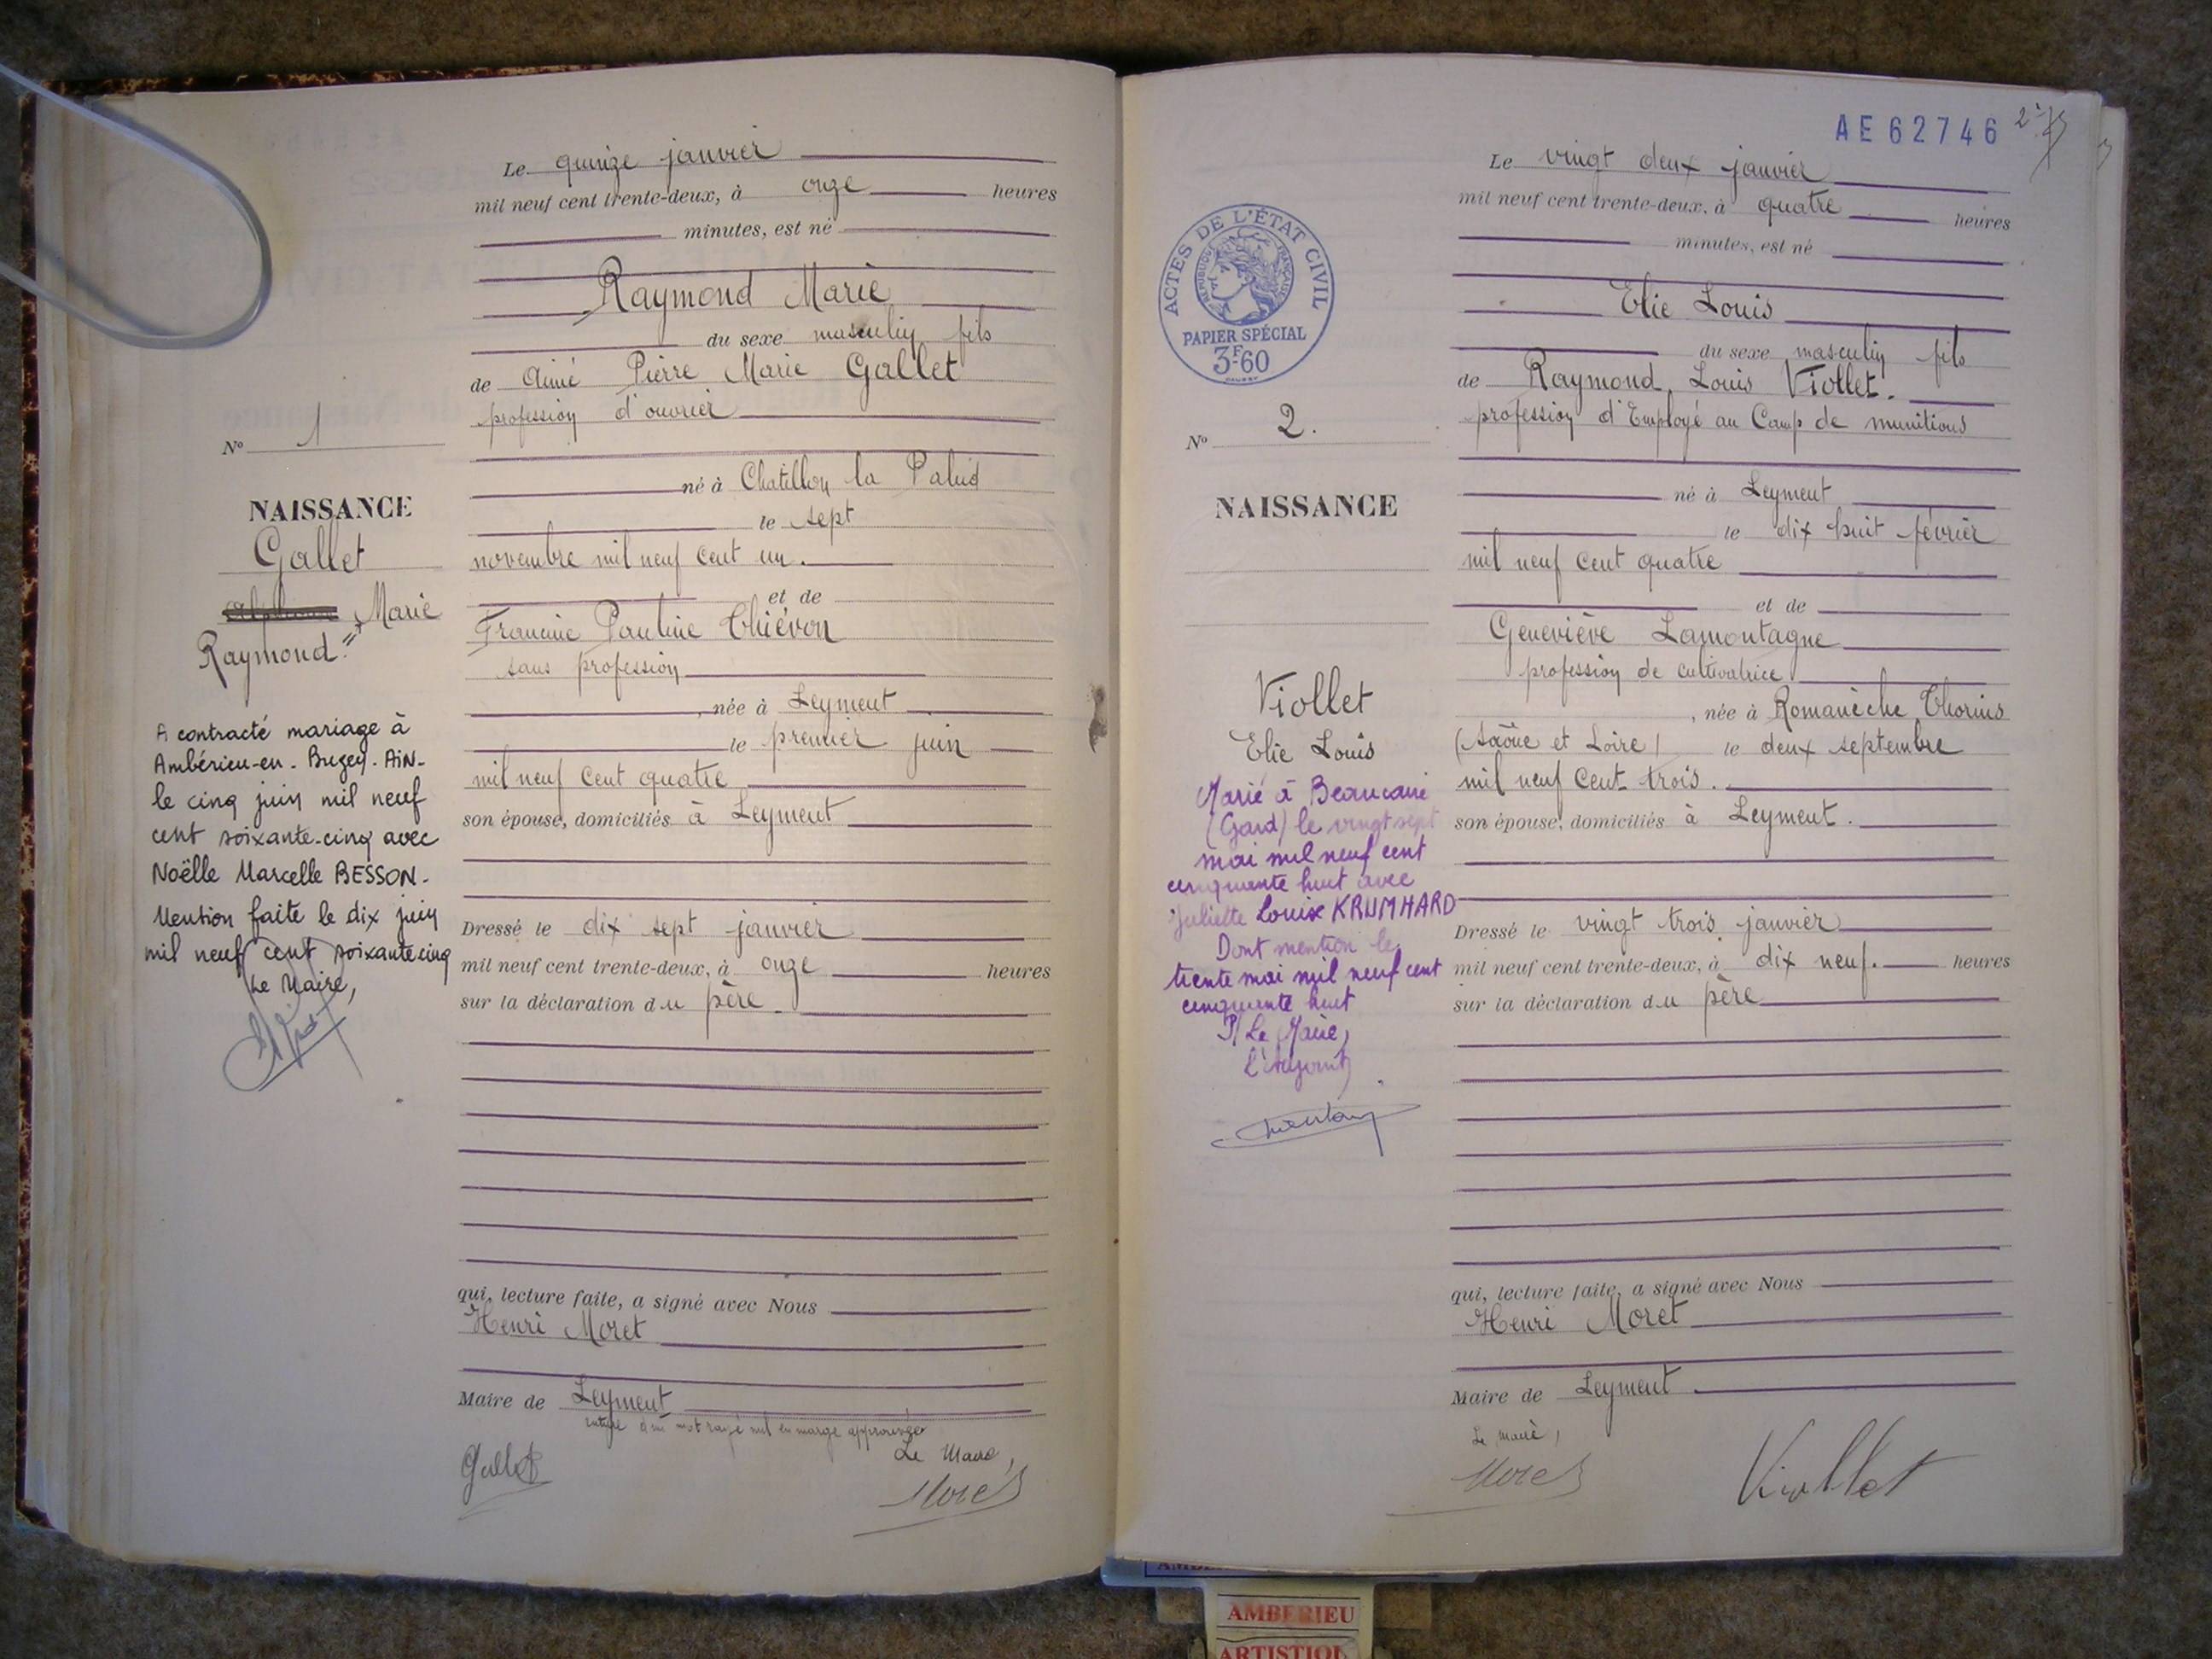 Le quinze janvier
mil neuf cent trente-deux, à onze heures
minutes, est né
Raymond Marie
du sexe masculin fils
de Aimé Pierre Marie Gallet
profession d'ouvrier
né à Chatillon la Palud
le sept
novembre mil neuf cent un.
et de
Francine Pauline Thiévon
sans profession
, née à Leyment
le premier juin
mil neuf cent quatre
son épouse, domiciliés à Leyment
Dressé le dix sept janvier
mil neuf cent trente-deux, à onze heures
sur la déclaration du père.
qui, lecture faite, a signé avec Nous
Henri Moret
Maire de Leyment
mot rayé nul en marge approuvée
Le Maire,
Gallet
Moret
N° 1
NAISSANCE
Gallet
Marie
Raymond
A contracté mariage à
Ambérieu-en-Bugey-AiN-
le cinq juin mil neuf
cent soixante-cinq avec
Noëlle Marcelle BESSON-
Mention faite le dix juin
mil neuf cent soixante cinq
Le Maire,
AE 62746
ACTES DE L'ÉTAT CIVIL
RÉPUBLIQUE FRANÇAISE
PAPIER SPÉCIAL
3F-60
N° 2.
NAISSANCE
Viollet
Elie Louis
Marié à Beaucaire
(Gard) le vingt sept
mai mil neuf cent
cinquante huit avec
Juliette Louise KRUMHARD
Dont mention le
trente mai mil neuf cent
cinquante huit
P/ Le Maire,
l'Adjoint
Le vingt deux janvier
mil neuf cent trente-deux, à quatre heures
minutes, est né
Elie Louis
du sexe masculin fils
de Raymond, Louis Viollet.
profession d'Employé au Camp de munitions
né à Leyment
le dix huit février
mil neuf cent quatre
et de
Geneviève Lamontagne
profession de cultivatrice
, née à Romanèche Thorins
(Saône et Loire) le deux septembre
mil neuf cent trois.
son épouse, domiciliés à Leyment.
Dressé le vingt trois janvier
mil neuf cent trente-deux, à dix neuf. heures
sur la déclaration du père
qui, lecture faite, a signé avec Nous
Henri Moret
Maire de Leyment
Le maire,
Moret
Viollet
AMBERIEU
ARTISTIQU